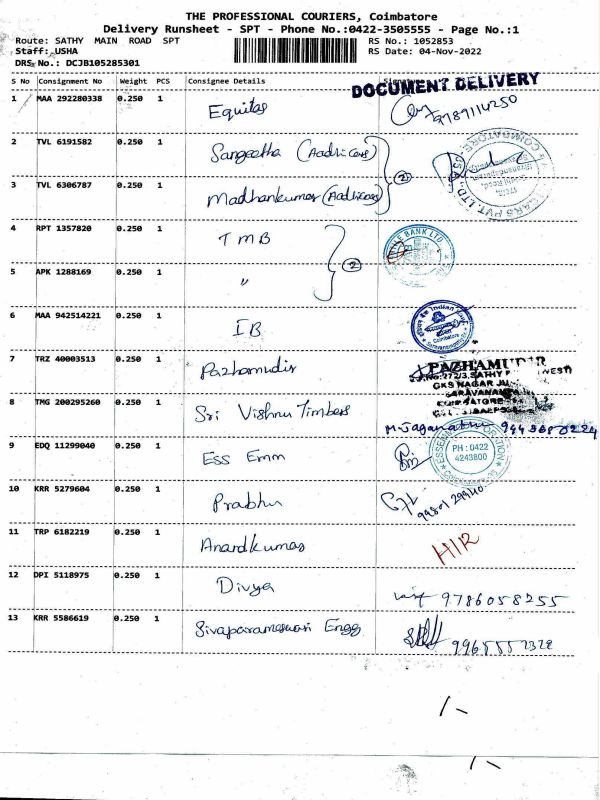 THE PROFESSIONAL COURIERS, Coimbatore
Delivery Runsheet - SPT - Phone No.:0422-3505555 - Page No.:1
Route: SATHY MAIN ROAD SPT
RS No.: 1052853
Staff: USHA
RS Date: 04-Nov-2022
DRS No.: DCJB105285301
S No Consignment No Weight PCS Consignee Details Signature
DOCUMENT DELIVERY
1 MAA 292280338 0.250 1 Equitas
2 TVL 6191582 0.250 1 Sangeetha (Aadhi Cars)
3 TVL 6306787 0.250 1 Madhankumar (Aadhi Cars) 2
COIMBATORE
CARS PVT. LTD.
4 RPT 1357820 0.250 1 TMB
BANK LTD
5 APK 1288169 0.250 1 〃 2
6 MAA 942514221 0.250 1 IB
Indian
7 TRZ 40003513 0.250 1 Pazhamudir
PAZHAMUDIR
GKS NAGAR
8 TMG 200295260 0.250 1 Sri Vishnu Timbers
9 EDQ 11299040 0.250 1 Ess Emm
PH : 0422
4243800
10 KRR 5279604 0.250 1 Prabhu
11 TRP 6182219 0.250 1 Anandkumar
12 DPI 5118975 0.250 1 Divya 9786058255
13 KRR 5586619 0.250 1 Sivaparameswari Engg